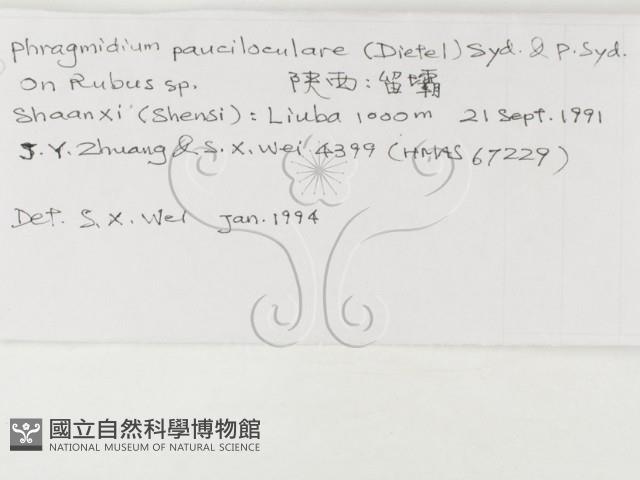 Phragmidium pauciloculare (Dietel) Syd. & P. Syd.
On Rubus sp. 陝西:留壩
Shaanxi (Shensi): Liuba 1000m 21 Sept. 1991
J. Y. Zhuang & S. X. Wei 4399 (HMAS 67229)
Det. S. X. Wei Jan. 1994
國立自然科學博物館
NATIONAL MUSEUM OF NATURAL SCIENCE